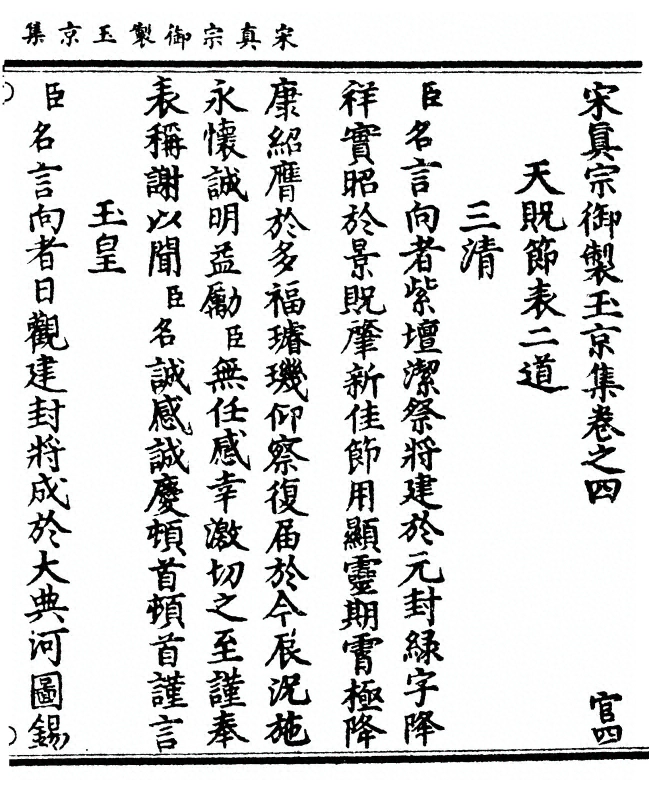 宋真宗御製玉京集
宋眞宗御製玉京集卷之四 官四
天貺節表二道
三清
臣名言向者紫壇潔祭將建於元封綠字降
祥實昭於景貺肇新佳節用顯靈期霄極降
康紹膺於多福璿璣仰察復屆於今辰況施
永懷誠明益勵臣無任感幸激切之至謹奉
表稱謝以聞臣名誠感誠慶頓首頓首謹言
玉皇
臣名言向者日觀建封將成於大典河圖錫